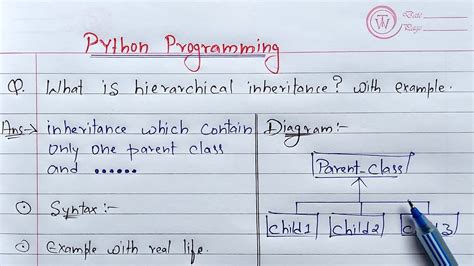 Date
Page
Python Programming
Q. What is hierarchical inheritance? with example.
Ans→ inheritance which contain
only one parent class
and ......
⊙ Syntax:-
⊙ Example with real life.
Diagram:-
Parent_class
child1 child2 child3